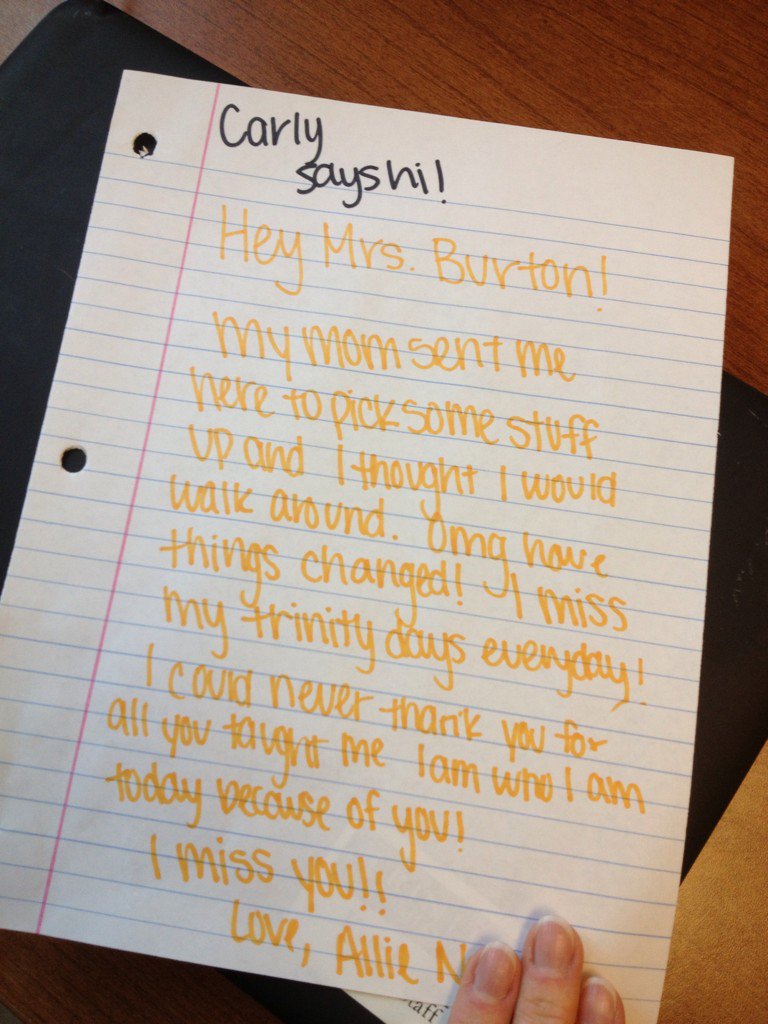 Carly
says hi!
Hey Mrs. Burton!
My mom sent me
here to pick some stuff
up and I thought I would
walk around. Omg have
things changed! I miss
my trinity days everyday!
I could never thank you for
all you taught me I am who I am
today because of you!
I miss you!!
Love, Allie N
taff